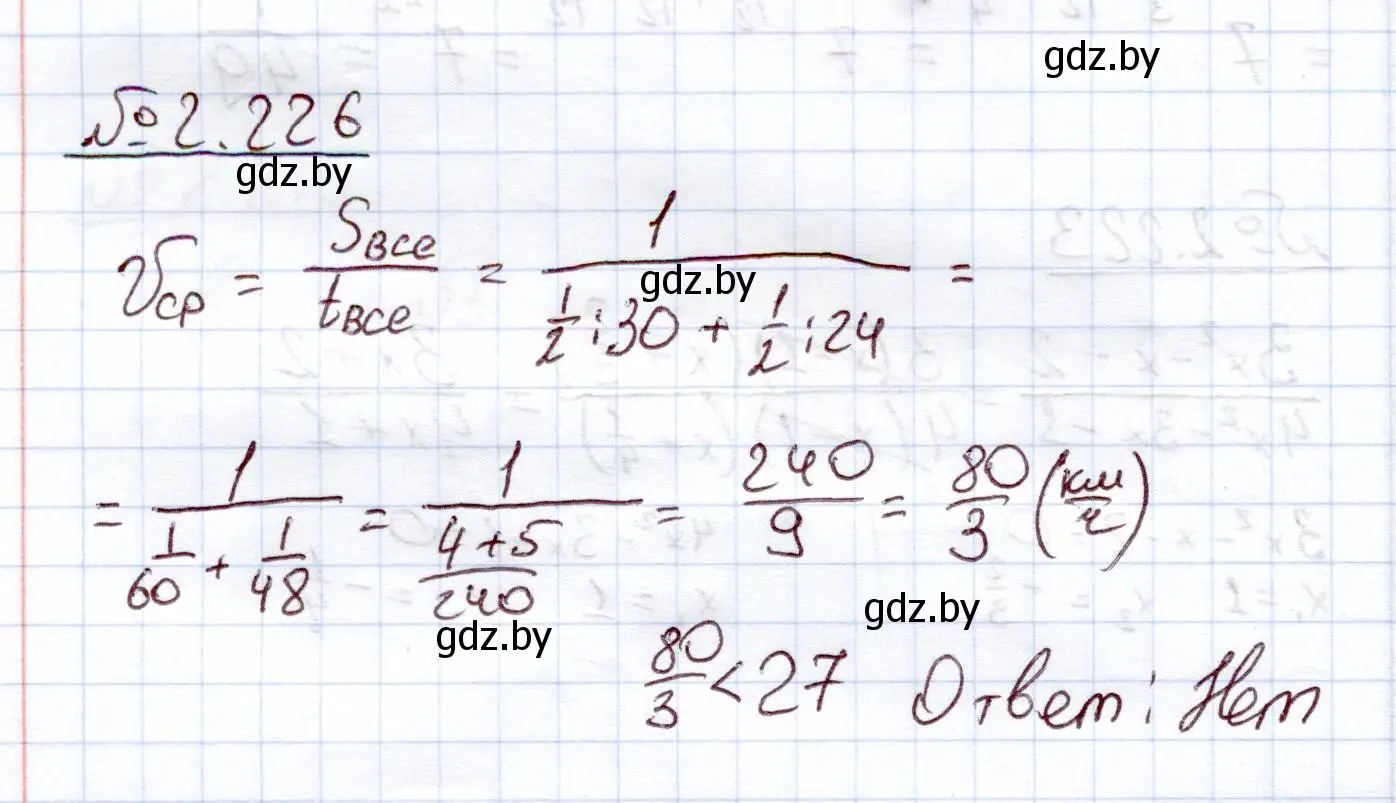 gdz.by
№ 2.226
gdz.by
Vср = Sвсе / tвсе = 1 / (1/2 : 30 + 1/2 : 24) =
gdz.by
= 1 / (1/60 + 1/48) = 1 / ((4+5)/240) = 240/9 = 80/3 (км/ч)
gdz.by
gdz.by
80/3 < 27 Ответ: Нет